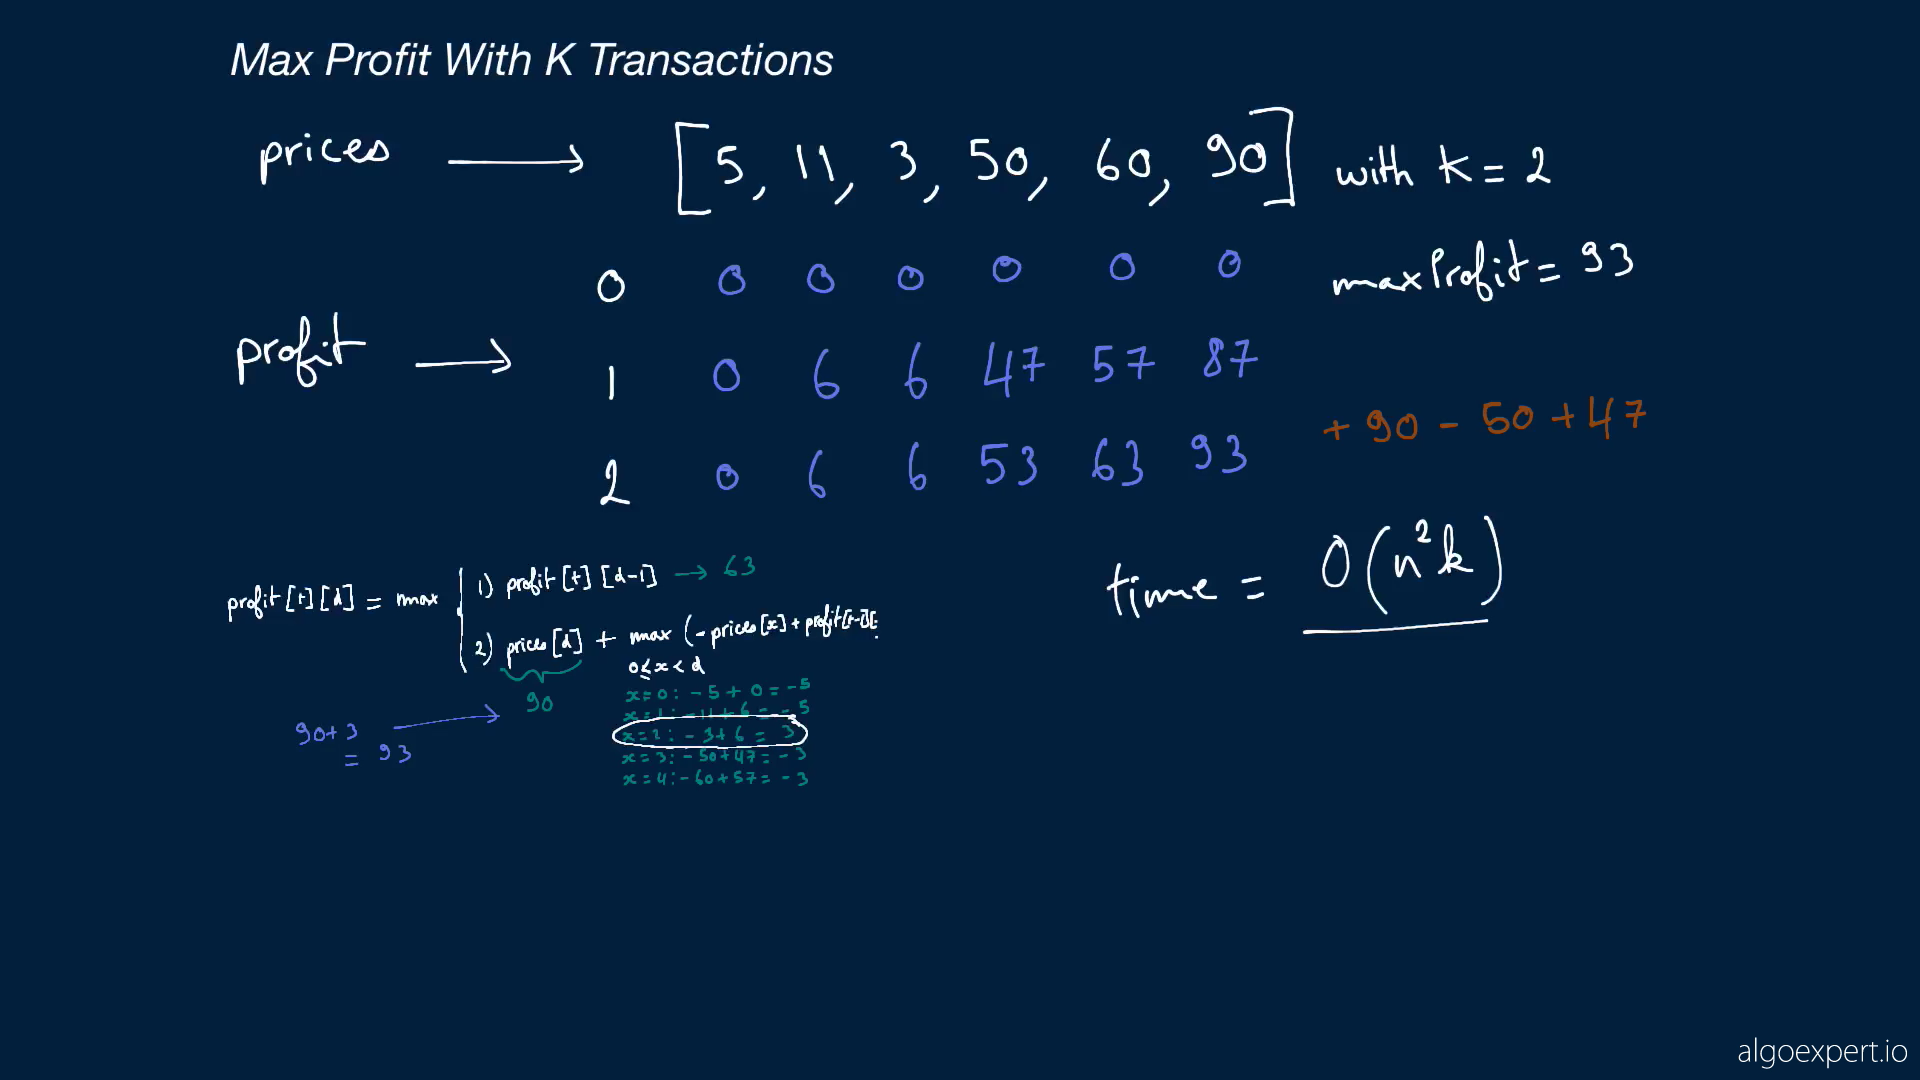 Max Profit With K Transactions
prices → [5, 11, 3, 50, 60, 90] with k = 2
0 0 0 0 0 0 0
maxProfit = 93
profit →
1 0 6 6 47 57 87
+ 90 - 50 + 47
2 0 6 6 53 63 93
time = O(n²k)
profit[t][d] = max
1) profit[t][d-1] → 63
2) prices[d] + max (-prices[x] + profit[t-1][
0 ≤ x < d
90
x=0: -5 + 0 = -5
x=1: -11 + 6 = -5
x=2: -3 + 6 = 3
x=3: -50 + 47 = -3
x=4: -60 + 57 = -3
90+3 →
= 93
algoexpert.io